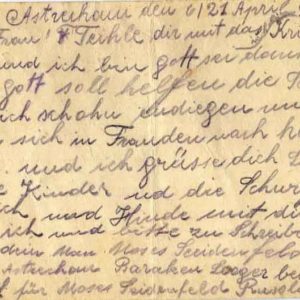 Astrechaun den 6/21 April
Frau! Teihle dir mit das
und ich bin gott sei dank
gott soll helfen die
ich schohn endiegen
sich in Frauden nach
und ich grüsse dich
Kinder und die
ich und Hinde mit
ich und bitte zu Schreiben
dein Man Moses Seidenfeld
Astrechan Baraken Looger
für Moses Seidenfeld